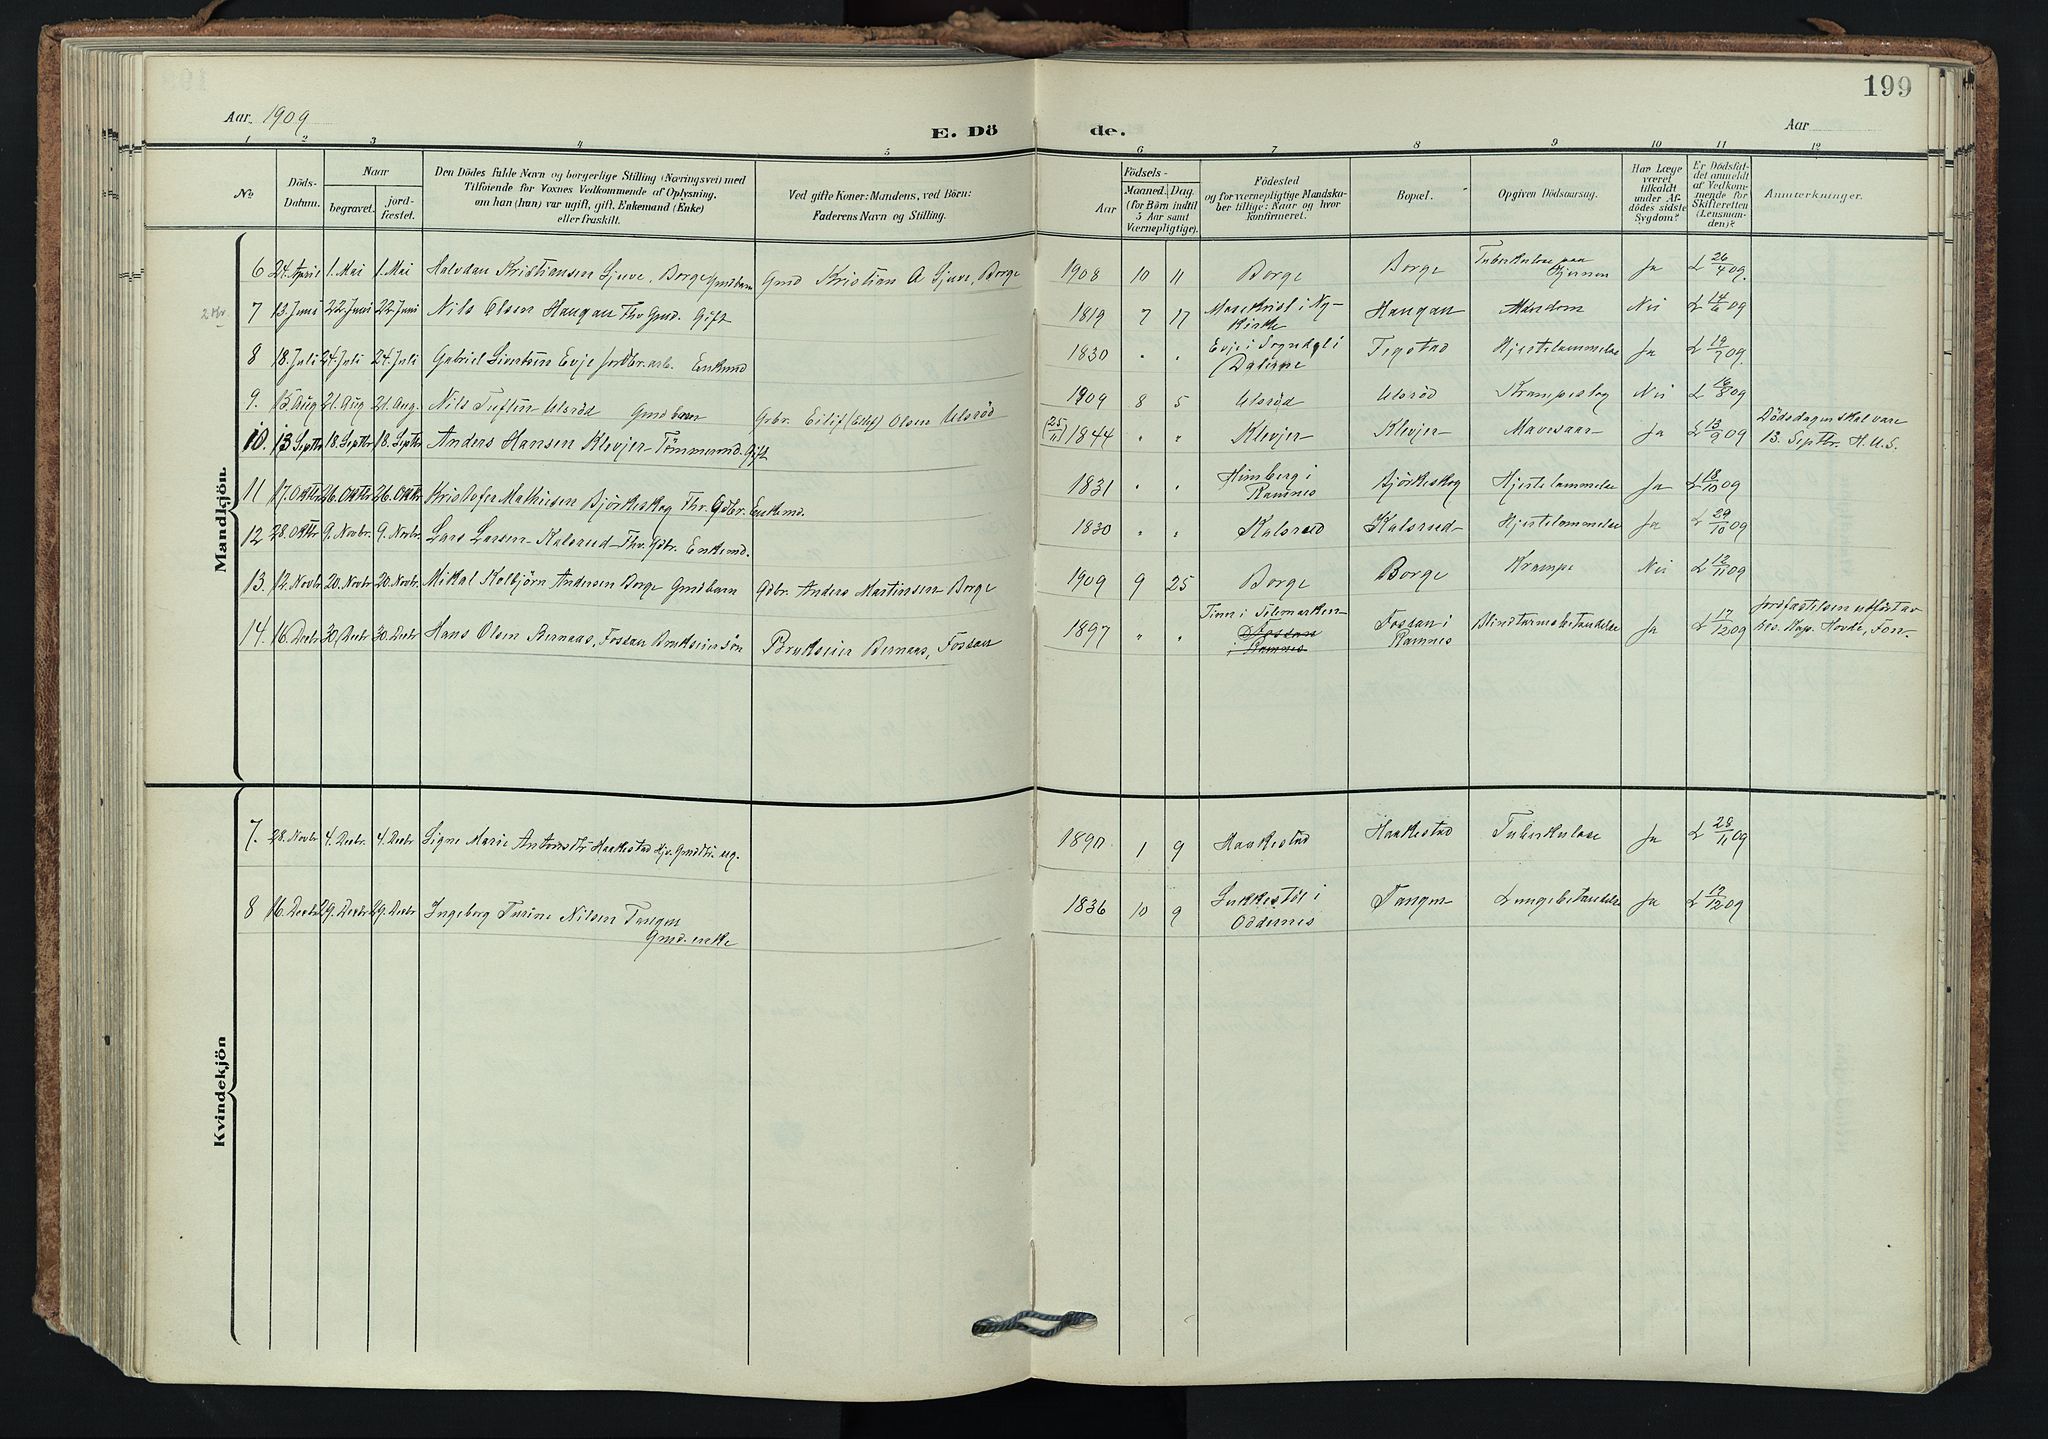 199
Aar. 1909
E. Dö
de.
Aar
1 2 3 4 5 6 7 8 9 10 11 12
No
Döds-Datum.
Naar
begravet.
jord-fæstet.
Den Dödes fulde Navn og borgerlige Stilling (Næringsvei) med
Tilföiende for Voxnes Vedkommende af Oplysning,
om han (hun) var ugift, gift, Enkemand (Enke)
eller fraskilt.
Ved gifte Koner: Mandens, ved Börn:
Faderens Navn og Stilling.
Födsels-
Aar
Maaned.
Dag.
(for Börn indtil
5 Aar samt
Værnepligtige).
Födested
og for værnepligtige Mandska-
ber tillige: Naar og hvor
konfirmeret.
Bopæl.
Opgiven Dödsaarsag.
Har Læge
været
tilkaldt
under Af-
dödes sidste
Sygdom?
Er Dödsfal-
det anmeldt
af Vedkom-
mende for
Skifteretten
(Lensman-
den)?
Anmærkninger.
Mandkjön.
6 24. April 1. Mai 1. Mai Halvdan Kristiansen Sjuve, Borge Gmdbarn Gmd Kristian A Sjuve, Borge 1908 10 11 Borge Borge Tuberkulose paa Hjernen Ja L 26/4 09.
2 Kr.
7 13. Juni 22. Juni 22. Juni Nils Olsen Haugan Thv Gmd. Gift 1819 7 17 i Ny-
kirke Haugan Alderdom Nei L 14/6 09
8 18. Juli 24. Juli 24. Juli Gabriel Sivertsen Evje Jordbr.arb. Enkemd 1830 " " Evje i Sogndal i
Dalerne Tegstad Hjertelammelse Ja L 19/7 09.
9. 15 Aug 21. Aug 21. Aug. Nils Tuften Ulsröd Gmdbarn Gdbr. Eilif (Ellef) Olsen Ulsröd 1909 8 5 Ulsröd Ulsröd Krampeslag Nei L 16/8 09
10. 13 Septbr 18. Septbr 18. Septbr Anders Hansen Klevjer Tömmermd. Gift (25/11) 1844 " " Klevjer Klevjer Mavesaar Ja L 13/9 09 Dödsdagen skal være
13. Septbr. H.U.S.
11 17. Oktbr 26. Oktbr 26. Oktbr Kristofer Mathisen Björkeskog Thv. Gdbr. Enkemd. 1831 " " Himberg i
Ramnes Björkeskog Hjertelammelse Ja L 18/10 09
12 28. Oktbr 9. Novbr. 9. Novbr. Lars Larsen Kalsrud Thv. Gdbr. Enkemd. 1830 " " Kalsrud Kalsrud Hjertelammelse Ja L 29/10 09
13. 12. Novbr 20. Novbr 20. Novbr. Mikal Kolbjörn Andersen Borge Gmdbarn Gdbr. Anders Martinsen Borge 1909 9 25 Borge Borge Krampe Nei L 12/11 09
14. 16. Decbr 30. Decbr 30. Decbr Hans Olsen Bernaas, Fossan Brukseiersön Brukseier Bernaas, Fossan 1897 " " Tinn i Telemarken
Fossan
i Ramnes Fossan i
Ramnes Blindtarmsbetændelse Ja L 17/12 09 Jordfæstelsen utfört av
Kap. Hovde, Fon.
Kvindekjön
7. 28. Novbr 4. Decbr. 4. Decbr Signe Marie Antonsdtr Haakestad Hjv. Gmdtr. ug. 1890 1 9 Haakestad Haakestad Tuberkulose Ja L 28/11 09
8 16. Decbr 29. Decbr 29. Decbr Ingeborg Turine Nilsen Tangen
Gmd.enke 1836 10 9 i
Oddernes Tangen Lungebetændelse Ja L 19/12 09